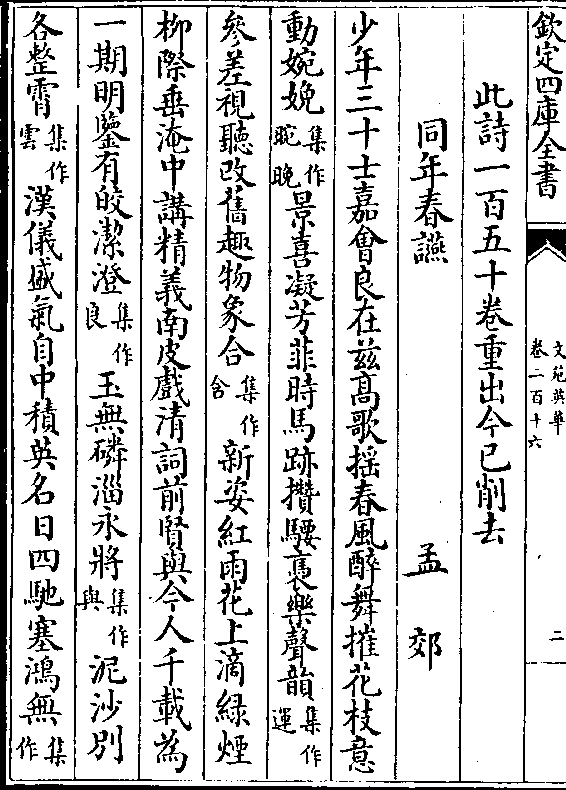 欽定四庫全書
文苑英華
卷二百十六
二
此詩一百五十卷重出今已削去
同年春讌 孟郊
少年三十士嘉會良在兹高歌揺春風醉舞摧花枝意
動婉娩集作晼晚景喜凝芳菲時馬跡攢騕褭樂聲韻集作運
參差視聽改舊趣物象合集作含新姿紅雨花上滴緑煙
柳際垂淹中講精義南皮戲清詞前賢與今人千載為
一期明鑒有皎潔澄集作良玉無磷淄永將集作與泥沙別
各整霄集作雲漢儀盛氣自中積英名日四馳塞鴻無集作